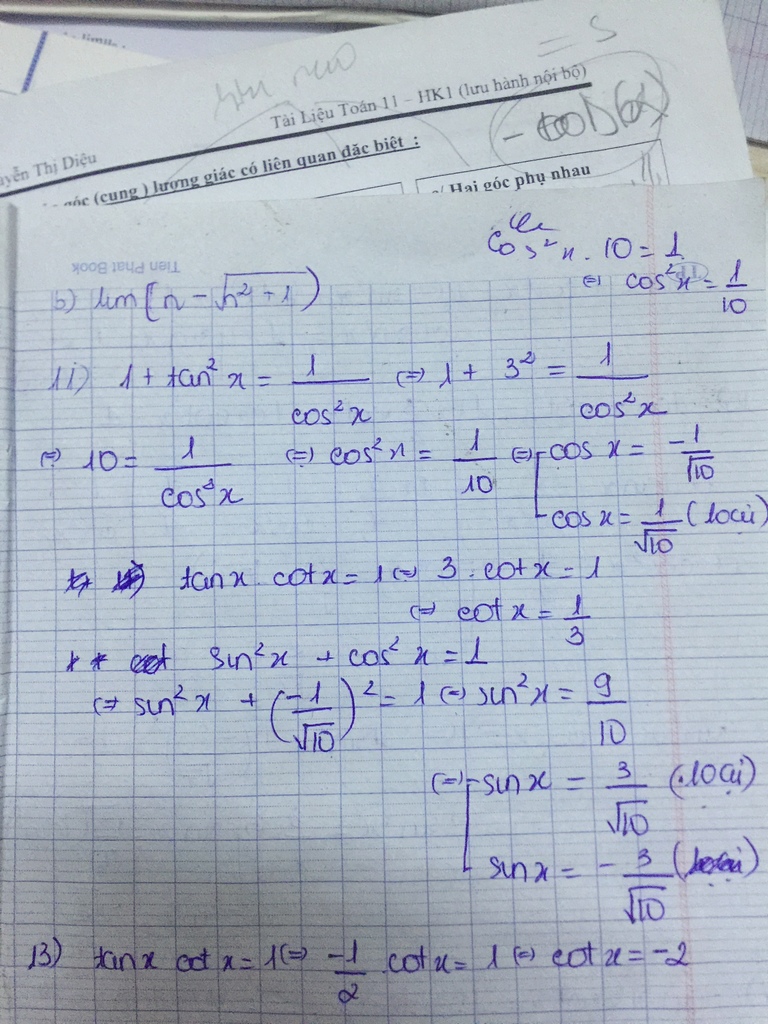 = S
Tài Liệu Toán 11 – HK1 (lưu hành nội bộ)
Thị Diệu
góc (cung ) lượng giác có liên quan đặc biệt :
Hai góc phụ nhau
cos²x . 10 = 1
⇔ cos²x = 1/10
Tien Phat Book
b) lim(n - √(n² + 1))
11) 1 + tan²x = 1/cos²x ⇔ 1 + 3² = 1/cos²x
⇔ 10 = 1/cos²x ⇔ cos²x = 1/10 ⇔ [ cos x = -1/√10
cos x = 1/√10 (loại)
tanx . cotx = 1 ⇔ 3 . cotx = 1
⇔ cotx = 1/3
* * sin²x + cos²x = 1
⇔ sin²x + (-1/√10)² = 1 ⇔ sin²x = 9/10
⇔ [ sinx = 3/√10 (loại)
sinx = - 3/√10
13) tanx cotx = 1 ⇔ -1/2 . cotx = 1 ⇔ cotx = -2